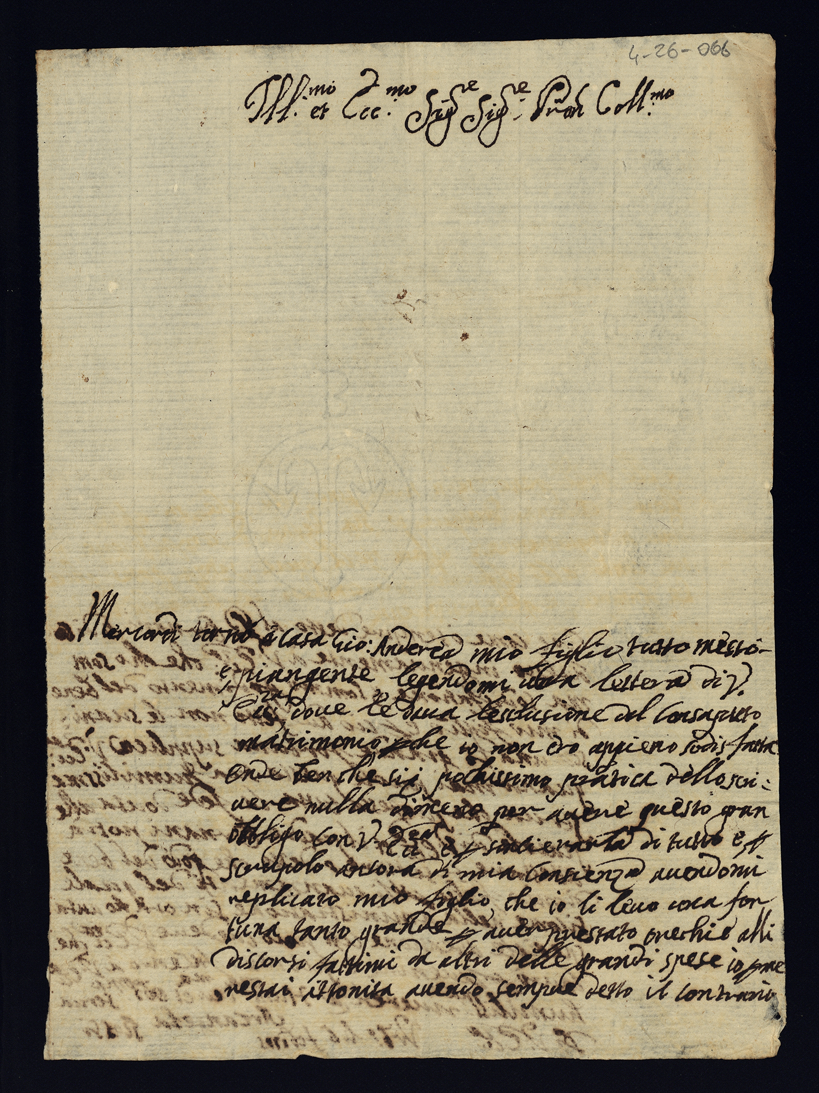 4-26-066
Ill.mo et Ecc.mo Sig.re Sig.re Pron Coll.mo
Mercordi tornò a casa Gio: Andrea mio figlio tutto mesto
e piangente legendomi una lettera di V.
Ecc.za dove le dava l'esclusione del Consaputo
matrimonio perche io non ero appieno sodisfatta
onde ben che sij pochissimo pratica dello scri:
vere nulla dimeno per avere questo gran
obbligo con V. Ecc.za e p di tutto e p
scrupolo ancora di mia Conscienza avendomi
replicato mio figlio che io li levo una for
tuna tanto grande p aver prestato orechie alli
discorsi fattimi da altri delle grandi spese io
restai attonita avendo sempre detto il contrario